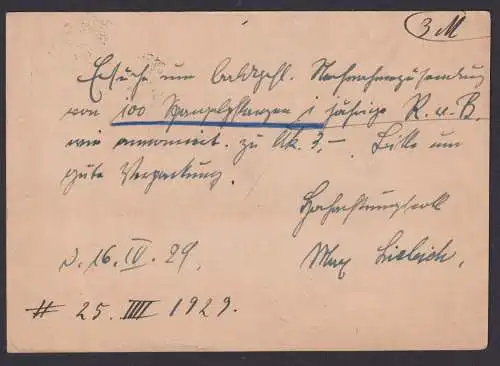 3 M
Ersuche um baldgefl. Nachnahmezusendung
von 100 Spargelpflanzen 1 jährige R. v. B.
wie annonciert. zu Mk. 3,-. Bitte um
gute Verpackung.
Hochachtungsvoll
d. 16. IV. 29.
Max
# 25. IIII 1929.